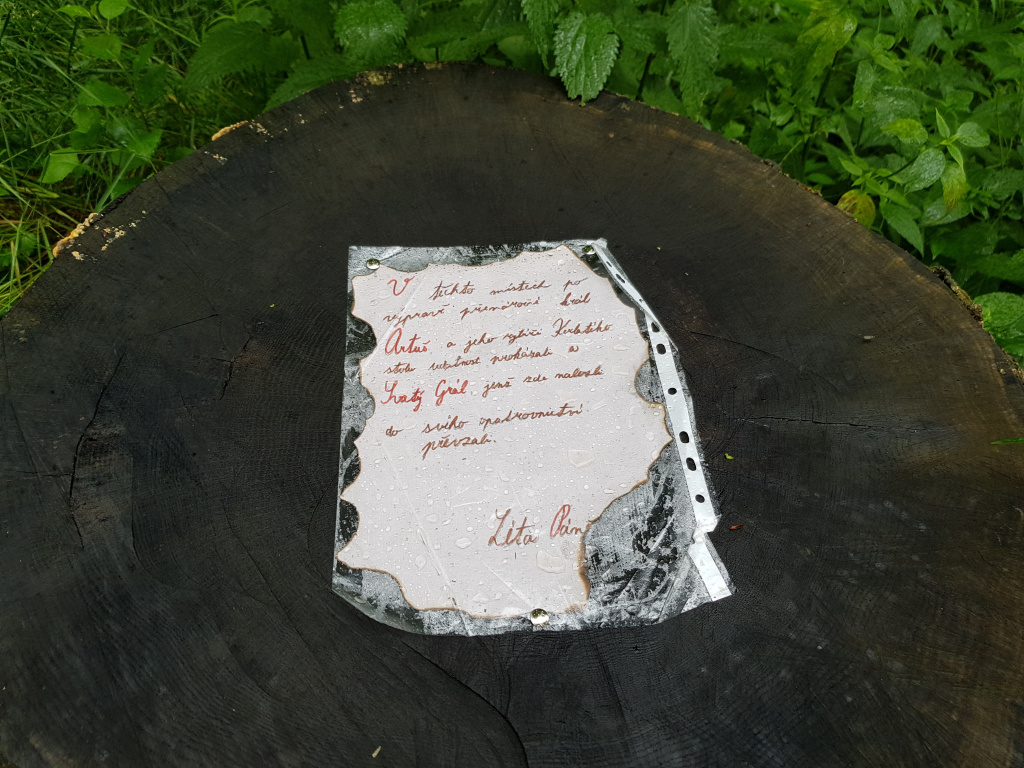 V těchto místech po
výpravě přenáročné král
Artuš a jeho rytíři Kulatého
stolu udatnost prokázali a
Svatý Grál jenž zde nalezli
do svého opatrovnictví
převzali.
Léta Páně